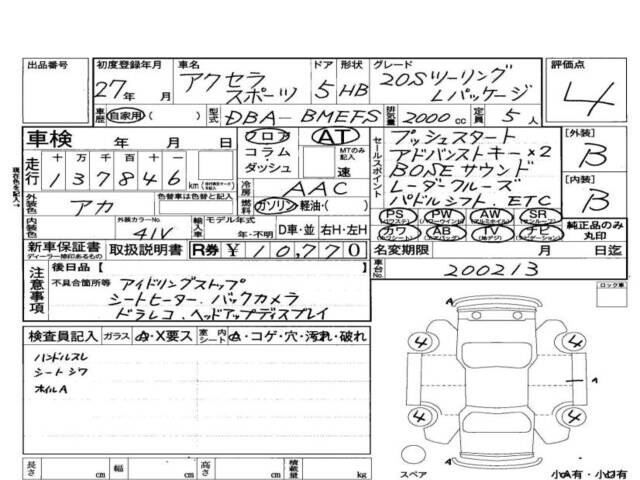 出品番号
初度登録年月
27年 月
車名
アクセラ
スポーツ
ドア
5
形状
HB
グレード
20Sツーリング
Lパッケージ
評価点
4
車歴 自家用 ( )
型式
DBA-BMEFS
排気量 2000 cc
定員 5 人
車検 年 月 日
走行
十万千百十一
137846 km
フロア
コラム・
ダッシュ
AT
MTのみ記入
速
セールスポイント
プッシュスタート
アドバンストキー×2
BOSEサウンド
レーダクルーズ
パドルシフト.ETC
[外装]
B
[内装]
B
現在色を記入→
外装色
アカ
色替車は色替と記入
冷房
AAC
燃料
ガソリン・軽油・( )
内装色
外装カラーNo.
41V
輸入車
モデル年式
年・不明
D車・並 右H・左H
PS
PW
AW
SR
(パワステ)
(パワーウインド)
(アルミホイル)
(サンルーフ)
カワ
AB
TV
ナビ
(エアバッグ)
(地デジ)
純正品のみ
丸印
新車保証書
ディーラー捺印あるもの
取扱説明書
R券 ¥10,770
名変期限 月 日迄
車台No.
200213
注意事項
後日品 [ ]
不具合箇所等
アイドリングストップ
シートヒーター.バックカメラ
ドラレコ.ヘッドアップディスプレイ
ロック車
検査員記入
ガラス
A・X要ス
室内シート
A・コゲ・穴・汚れ・破れ
ハンドルスレ
シートシワ
ホイルA
A
4
4
A
4
4
A
スペア
小A有・小U有
長さ cm
幅 cm
高さ cm
積載量 kg